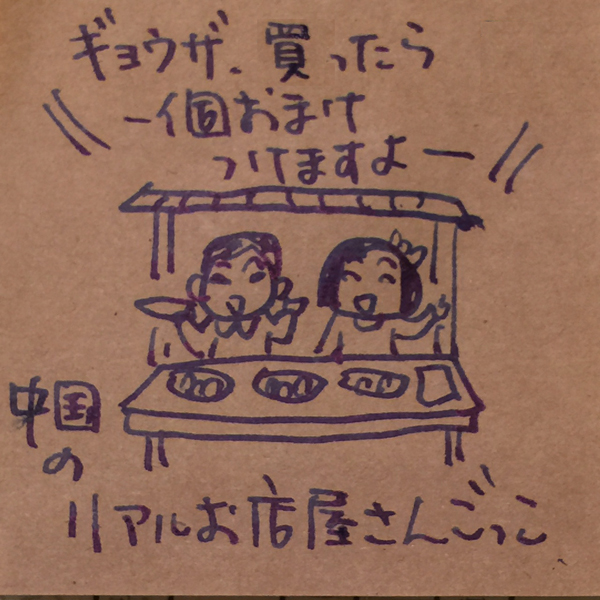 ギョウザ、買ったら
一個おまけ
つけますよー
中国
の
リアルお店屋さんごっこ